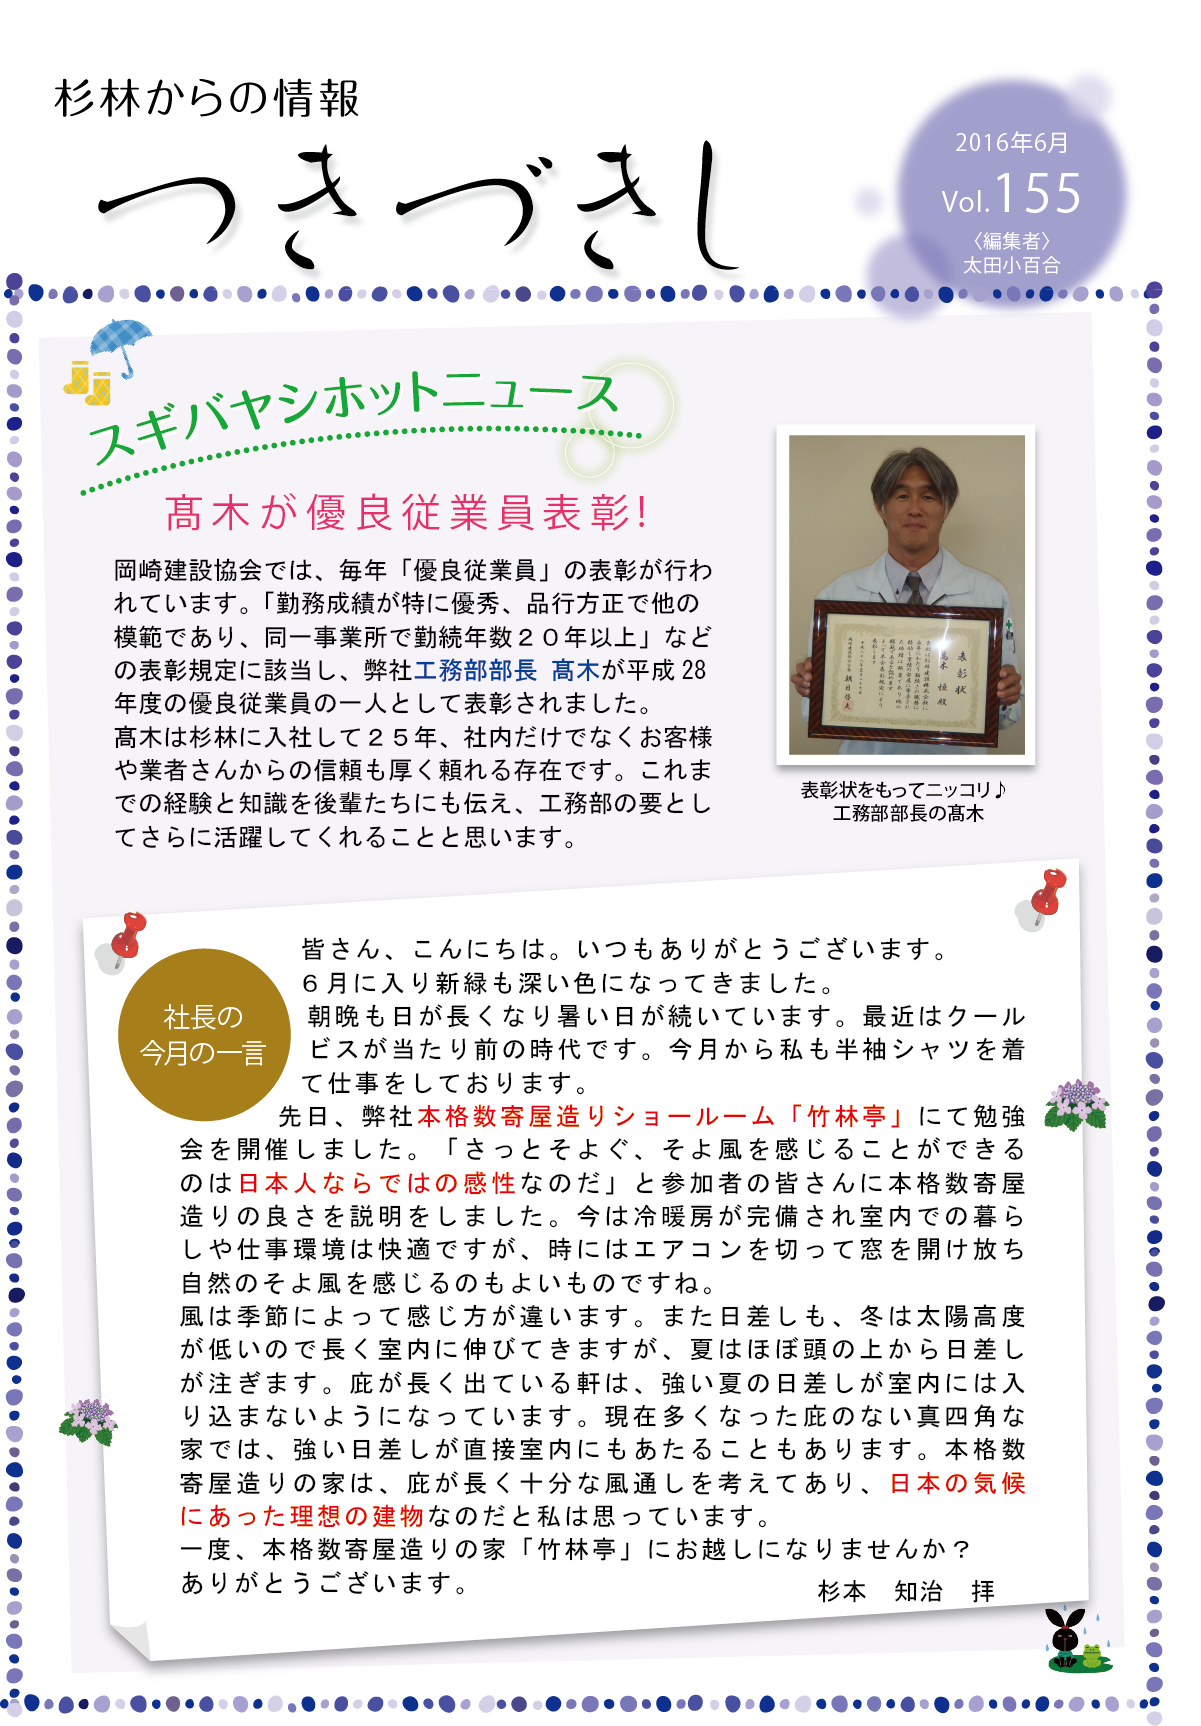 杉林からの情報
つきづきし
2016年6月
Vol.155
〈編集者〉
太田小百合
スギバヤシホットニュース
髙木が優良従業員表彰!
岡崎建設協会では、毎年「優良従業員」の表彰が行わ
れています。「勤務成績が特に優秀、品行方正で他の
模範であり、同一事業所で勤続年数２０年以上」など
の表彰規定に該当し、弊社工務部部長 髙木が平成 28
年度の優良従業員の一人として表彰されました。
髙木は杉林に入社して２５年、社内だけでなくお客様
や業者さんからの信頼も厚く頼れる存在です。これま
での経験と知識を後輩たちにも伝え、工務部の要とし
てさらに活躍してくれることと思います。
表彰状
表彰状をもってニッコリ♪
工務部部長の髙木
社長の
今月の一言
皆さん、こんにちは。いつもありがとうございます。
６月に入り新緑も深い色になってきました。
朝晩も日が長くなり暑い日が続いています。最近はクール
ビスが当たり前の時代です。今月から私も半袖シャツを着
て仕事をしております。
先日、弊社本格数寄屋造りショールーム「竹林亭」にて勉強
会を開催しました。「さっとそよぐ、そよ風を感じることができる
のは日本人ならではの感性なのだ」と参加者の皆さんに本格数寄屋
造りの良さを説明をしました。今は冷暖房が完備され室内での暮ら
しや仕事環境は快適ですが、時にはエアコンを切って窓を開け放ち
自然のそよ風を感じるのもよいものですね。
風は季節によって感じ方が違います。また日差しも、冬は太陽高度
が低いので長く室内に伸びてきますが、夏はほぼ頭の上から日差し
が注ぎます。庇が長く出ている軒は、強い夏の日差しが室内には入
り込まないようになっています。現在多くなった庇のない真四角な
家では、強い日差しが直接室内にもあたることもあります。本格数
寄屋造りの家は、庇が長く十分な風通しを考えてあり、日本の気候
にあった理想の建物なのだと私は思っています。
一度、本格数寄屋造りの家「竹林亭」にお越しになりませんか？
ありがとうございます。
杉本　知治　拝